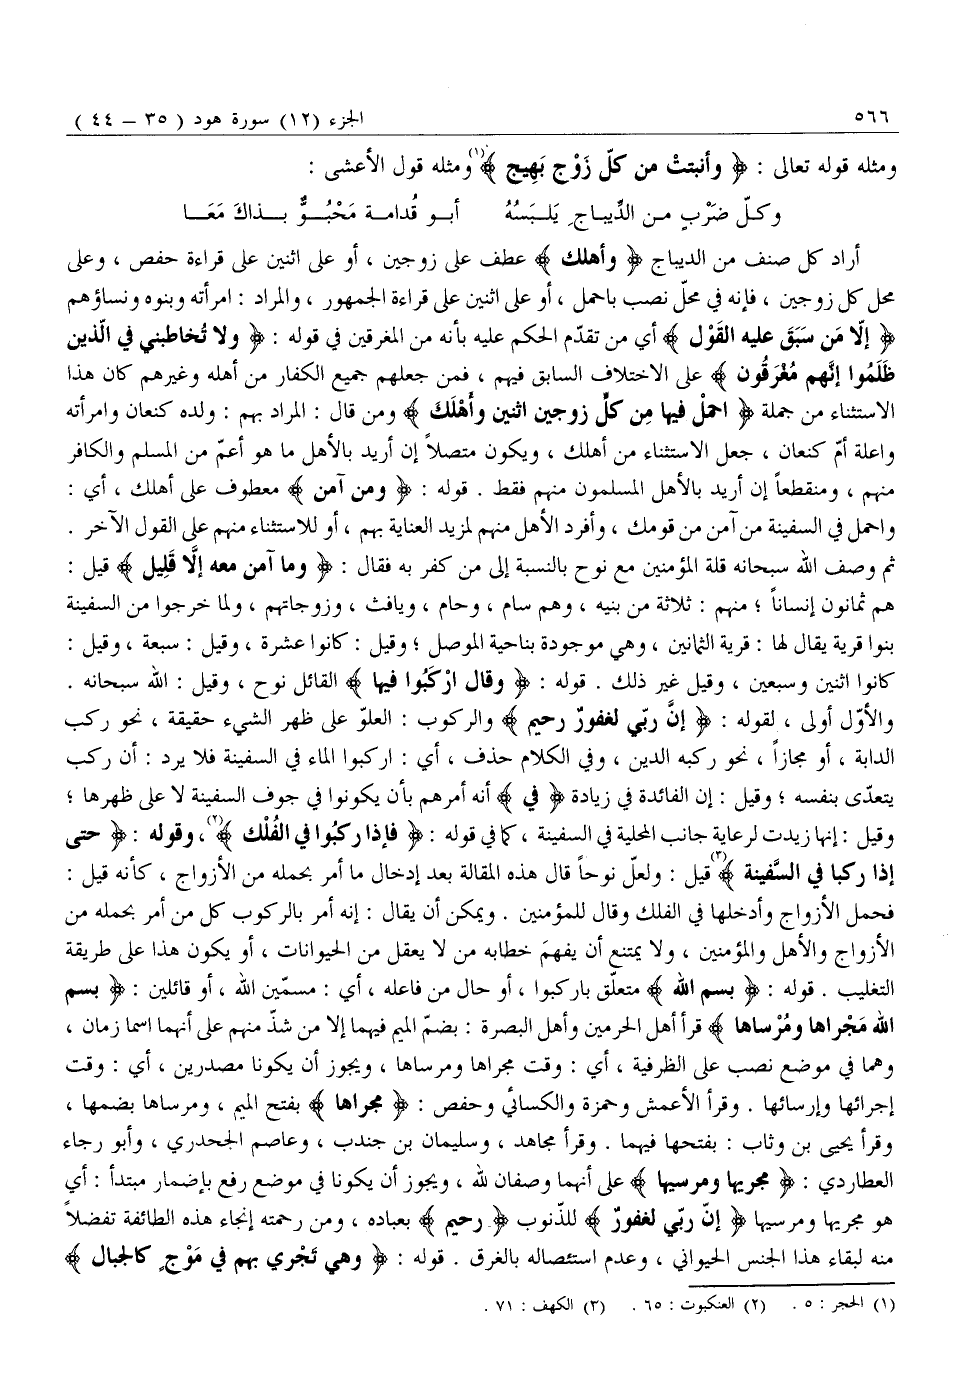 ٥٦٦ الجزء (١٢) سورة هود ( ٣٥ – ٤٤ )
ومثله قوله تعالى : ﴿ وأنبتتْ من كلّ زَوْج بَهِيج ﴾(١) ومثله قول الأعشى :
وكلّ ضَرْبٍ من الدِّيباجِ يَلبَسُهُ أبو قُدامة مَحْبُوٌّ بذاكَ مَعَا
أراد كل صنف من الديباج ﴿ وأهلك ﴾ عطف على زوجين ، أو على اثنين على قراءة حفص ، وعلى
محل كل زوجين ، فإنه في محلّ نصب باحمل ، أو على اثنين على قراءة الجمهور ، والمراد : امرأته وبنوه ونساؤهم
﴿ إلّا مَن سَبَقَ عليه القَوْل ﴾ أي من تقدّم الحكم عليه بأنه من المغرقين في قوله : ﴿ ولا تُخاطبني في الّذين
ظَلَمُوا إنَّهم مُغْرَقُون ﴾ على الاختلاف السابق فيهم ، فمن جعلهم جميع الكفار من أهله وغيرهم كان هذا
الاستثناء من جملة ﴿ احملْ فيها مِن كلٍّ زوجين اثنين وأَهْلَكَ ﴾ ومن قال : المراد بهم : ولده كنعان وامرأته
واعلة أمّ كنعان ، جعل الاستثناء من أهلك ، ويكون متصلاً إن أريد بالأهل ما هو أعمّ من المسلم والكافر
منهم ، ومنقطعاً إن أريد بالأهل المسلمون منهم فقط . قوله : ﴿ ومن آمن ﴾ معطوف على أهلك ، أي :
واحمل في السفينة من آمن من قومك ، وأفرد الأهل منهم لمزيد العناية بهم ، أو للاستثناء منهم على القول الآخر .
ثم وصف الله سبحانه قلة المؤمنين مع نوح بالنسبة إلى من كفر به فقال : ﴿ وما آمن معه إلَّا قَلِيل ﴾ قيل :
هم ثمانون إنساناً ؛ منهم : ثلاثة من بنيه ، وهم سام ، وحام ، ويافث ، وزوجاتهم ، ولما خرجوا من السفينة
بنوا قرية يقال لها : قرية الثمانين ، وهي موجودة بناحية الموصل ؛ وقيل : كانوا عشرة ، وقيل : سبعة ، وقيل :
كانوا اثنين وسبعين ، وقيل غير ذلك . قوله : ﴿ وقال ارْكَبُوا فيها ﴾ القائل نوح ، وقيل : الله سبحانه .
والأوّل أولى ، لقوله : ﴿ إنَّ ربّي لغفورٌ رحيم ﴾ والركوب : العلوّ على ظهر الشيء حقيقة ، نحو ركب
الدابة ، أو مجازاً ، نحو ركبه الدين ، وفي الكلام حذف ، أي : اركبوا الماء في السفينة فلا يرد : أن ركب
يتعدّى بنفسه ؛ وقيل : إن الفائدة في زيادة ﴿ في ﴾ أنه أمرهم بأن يكونوا في جوف السفينة لا على ظهرها ؛
وقيل : إنها زيدت لرعاية جانب المحلية في السفينة ، كما في قوله : ﴿ فإذا ركبُوا في الفُلْك ﴾(٢)، وقوله : ﴿ حتى
إذا ركبا في السَّفينة ﴾(٣) قيل : ولعلّ نوحاً قال هذه المقالة بعد إدخال ما أمر بحمله من الأزواج ، كأنه قيل :
فحمل الأزواج وأدخلها في الفلك وقال للمؤمنين . ويمكن أن يقال : إنه أمر بالركوب كل من أمر بحمله من
الأزواج والأهل والمؤمنين ، ولا يمتنع أن يفهمَ خطابه من لا يعقل من الحيوانات ، أو يكون هذا على طريقة
التغليب . قوله : ﴿ بسم الله ﴾ متعلّق باركبوا ، أو حال من فاعله ، أي : مسمّين الله ، أو قائلين : ﴿ بسم
الله مَجْراها ومُرْساها ﴾ قرأ أهل الحرمين وأهل البصرة : بضمّ الميم فيهما إلا من شذّ منهم على أنهما اسما زمان ،
وهما في موضع نصب على الظرفية ، أي : وقت مجراها ومرساها ، ويجوز أن يكونا مصدرين ، أي : وقت
إجرائها وإرسائها . وقرأ الأعمش وحمزة والكسائي وحفص : ﴿ مجراها ﴾ بفتح الميم ، ومرساها بضمها ،
وقرأ يحيى بن وثاب : بفتحها فيهما . وقرأ مجاهد ، وسليمان بن جندب ، وعاصم الجحدري ، وأبو رجاء
العطاردي : ﴿ مجريها ومرسيها ﴾ على أنهما وصفان لله ، ويجوز أن يكونا في موضع رفع بإضمار مبتدأ : أي
هو مجريها ومرسيها ﴿ إنّ ربّي لغفورٌ ﴾ للذنوب ﴿ رحيم ﴾ بعباده ، ومن رحمته إنجاء هذه الطائفة تفضلاً
منه لبقاء هذا الجنس الحيواني ، وعدم استئصاله بالغرق . قوله : ﴿ وهي تَجْري بهم في مَوْجٍ كالجبال ﴾
(١) الحجر : ٥ . (٢) العنكبوت : ٦٥ . (٣) الكهف : ٧١ .